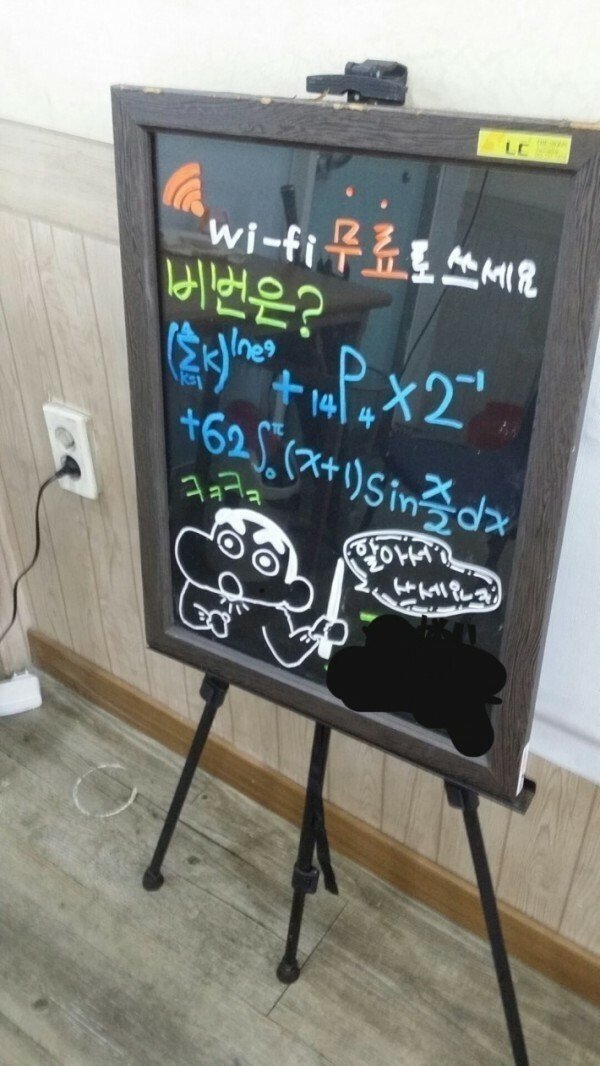 LC
wi-fi 무료로 쓰세요
비번은?
(∑K)^lne⁹ + ₁₄P₄ × 2⁻¹
+62∫₀^π (x+1)sin x/2 dx
ㅋㅋㅋㅋ
알아서
쓰세요